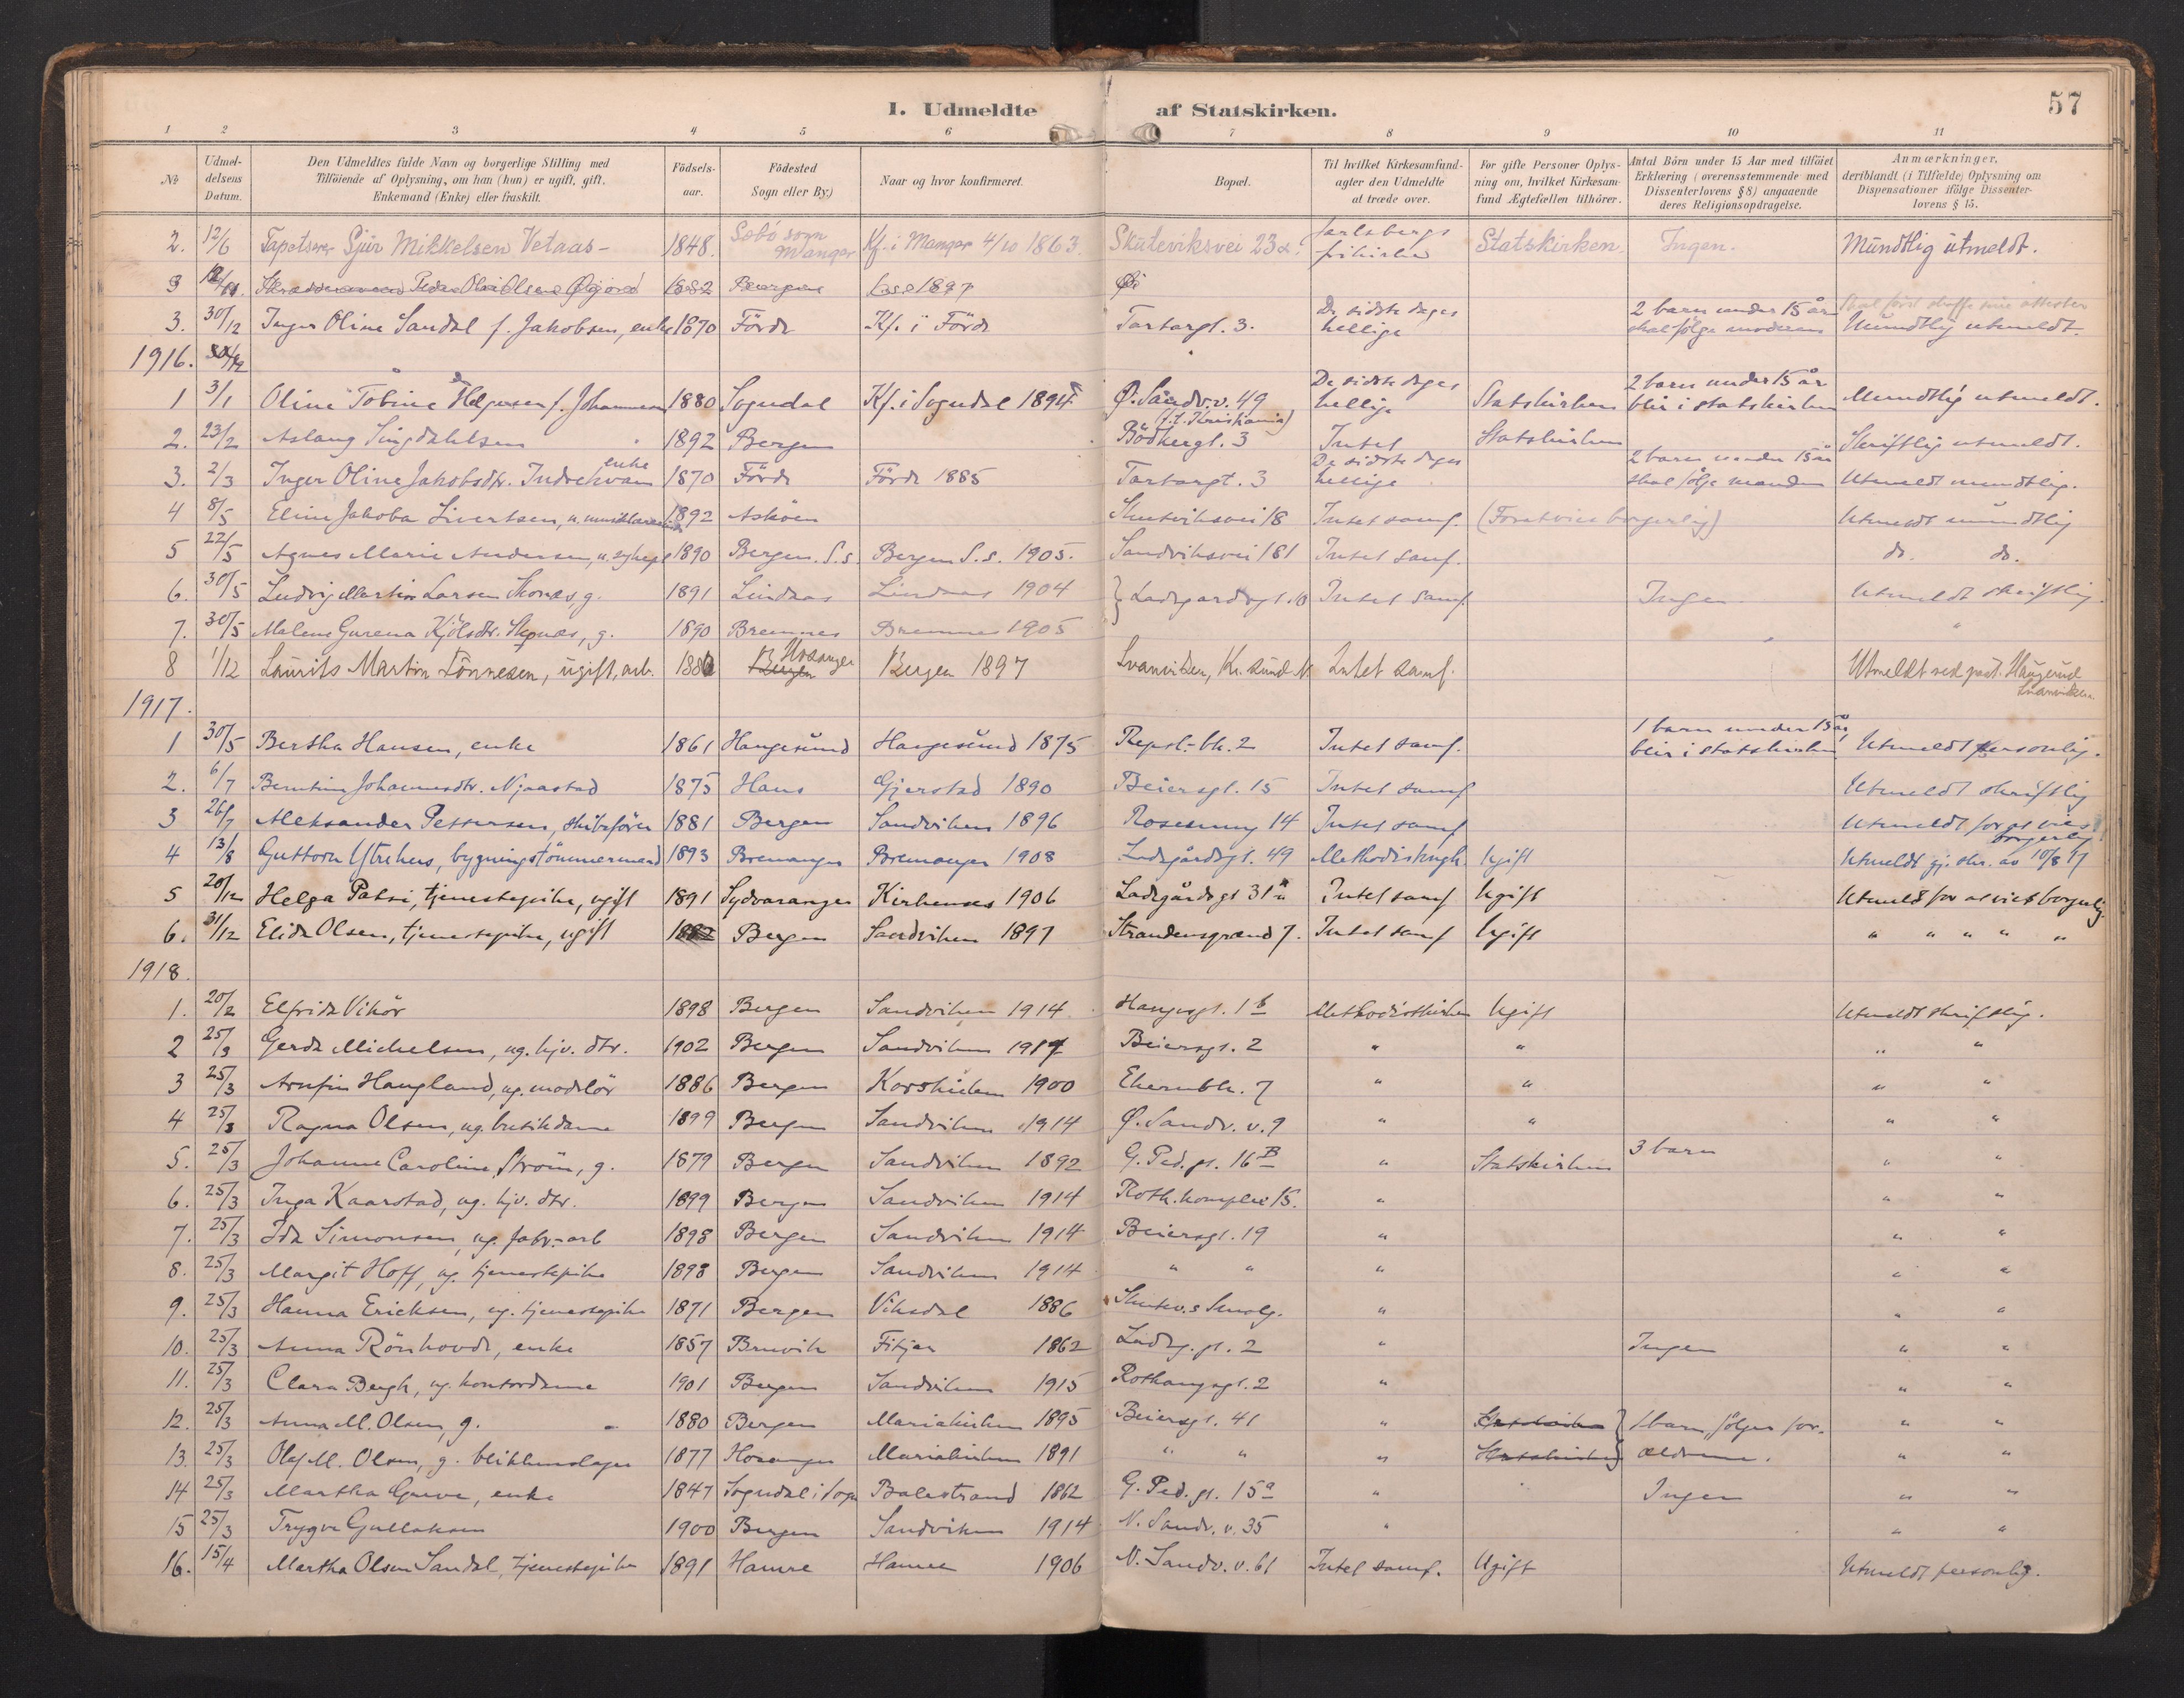 I. Udmeldte af Statskirken.
57
1 2 3 4 5 6 7 8 9 10 11
№
Udmeldelsens Datum.
Den Udmeldtes fulde Navn og borgerlige Stilling med
Tilföiende af Oplysning, om han (hun) er ugift, gift,
Enkemand (Enke) eller fraskilt.
Födselsaar.
Födested
Sogn eller By.)
Naar og hvor konfirmeret.
Bopæl.
Til hvilket Kirkesamfund agter den Udmeldte at træde over.
For gifte Personer Oplysning om, hvilket Kirkesamfund Ægtefællen tilhörer.
Antal Börn under 15 Aar med tilföiet Erklæring (overensstemmende med Dissenterlovens § 8) angaaende deres Religionsopdragelse.
Anmærkninger, deriblandt (i Tilfælde) Oplysning om Dispensationer ifölge Dissenterlovens § 15.
2. 12/6 Tapetserer Sjur Mikkelsen Vetaas- 1848. Sæbö sogn Manger Kf. i Manger 4/10 1863. Skuteviksvei 23a. Jarlsbergs frikirke Statskirken. Ingen. Mundtlig utmeldt.
3 1882 Bergen 1897
3. 30/12 Inger Oline Sandal f. Jakobsen, enke 1870 Förde Kf. i Förde Tartargt. 3. De sidste dages hellige 2 barn under 15 år skal følge moderen Skal först skaffe sine attester Mundtlig utmeldt.
1916.
1 3/1 Oline Tobine Helgesen f. Johannesen 1880 Sogndal Kf. i Sogndal 1894 Ø. Sandv.v. 49 (f.t. Kristiania) De sidste dages hellige Statskirken 2 barn under 15 år blir i statskirken Mundtlig utmeldt.
2. 23/2 Aslaug Singdahlsen 1892 Bergen Bödkergt. 3 Intet Statskirken Skriftlig utmeldt.
3. 2/3 Inger Oline Jakobsdtr. Indrekvam enke 1870 Förde Förde 1885 Tartargt. 3 De sidste dages hellige 2 barn under 15 år skal følge moderen Utmeldt mundtlig.
4 8/5 Eline Jakoba Sivertsen, u. 1892 Askøen Skuteviksvei 18 Intet samf. (Foretvies borgerlig) Utmeldt mundtlig
5 22/5 Agnes Marie Andersen, u. sykepl 1890 Bergen. S.s. Bergen S.s. 1905. Sandviksvei 181 Intet samf. do. do.
6. 30/5 Ludvig Martin Larsen g. 1891 Lindaas Lindaas 1904 Ladegaardsgt. 10 Intet samf. Ingen Utmeldt skriftlig.
7. 30/5 Malene Gurena g. 1890 Bremnes Bremnes 1905 "
8 1/12 Laurits Martin Tönnesen, ugift, arb. 188 Bergen Hosanger Bergen 1897 Svanviken, Kr.sund N. Intet samf. Utmeldt ved past. Haugerud Svanviken.
1917.
1 30/5 Bertha Hansen, enke 1861 Haugesund Haugesund 1875 Repsl.-bk. 2 Intet samf. 1 barn under 15 år, blir i statskirken. Utmeldt personlig.
2. 6/7 Berntine Johannesdtr. Njaastad 1875 Haus Gjerstad 1890 Beiersgt. 15 Intet samf Utmeldt skriftlig
3 26/7 Aleksander Pettersen, skibsförer 1881 Bergen Sandviken 1896 Rosesmug 14 Intet samf Utmeldt for at vies borgerlig
4 13/8 Guttorm Ytrehus, bygningstömmermand 1893 Bremanger Bremanger 1908 Ladegårdsgt. 49 Methodistmgh. Ugift Utmeldt gj. skr. av 10/8 17
5 20/12 Helga Patsi, tjenestepike, ugift 1891 Sydvaranger Kirkenes 1906 Ladegårdsgt 31a Intet samf Ugift Utmeldt for at vies borgerlig.
6. 31/12 Elida Olsen, tjenestepike, ugift 1882 Bergen Sandviken 1897 Strandensgrænd 7. Intet samf Ugift " " " " "
1918.
1. 20/2 Elfrida Vikör 1898 Bergen Sandviken 1914. Haugegt. 1b Methodistkirken Ugift Utmeldt skriftlig.
2 25/3 Gerda Michelsen, ug. hjv. dtr. 1902 Bergen Sandviken 1917 Beiersgt. 2 " " " "
3 25/3 Arnfin Haugland, ug. modelör 1886 Bergen Korskirken 1900 Ekernbk. 7 " " " "
4 25/3 Ragna Olsen, ug. butikdame 1899 Bergen Sandviken 1914 Ø. Sandv. v. 9 " " " "
5. 25/3 Johanne Caroline Ström, g. 1879 Bergen Sandviken 1892 G. Ped. gt. 16B " Statskirken 3 barn " "
6. 25/3 Inga Kaarstad, ug. hjv. dtr. 1899 Bergen Sandviken 1914 Roth. komplex 15. " " "
7. 25/3 Ida Simonsen, ug. fabr.-arb 1898 Bergen Sandviken 1914 Beiersgt. 19 " " "
8. 25/3 Margit Hoff, ug. tjenestepike 1898 Bergen Sandviken 1914 " " " " "
9. 25/3 Hanna Ericksen, ug. tjenestepike 1871 Bergen Viksdal 1886 Skutev.s Smalg. " " "
10. 25/3 Anna Rönhovde, enke 1857 Bruvik Fitjar 1862 Ladeg. gt. 2 " Ingen " "
11. 25/3 Clara Bergh, ug. kontordame 1901 Bergen Sandviken 1915 Rothaugsgt. 2 " " "
12. 25/3 Anna M. Olsen, g. 1880 Bergen Mariakirken 1895 Beiersgt. 41 " Statskirken 1 barn, følger for- " "
13. 25/3 Olaf M. Olsen, g. blikkenslager 1877 Hosanger Mariakirken 1891 " " " Statskirken ældrene. " "
14 25/3 Martha Greve, enke 1847 Sogndal i Sogn Balestrand 1862 G. Ped. gt. 15a " Ingen " "
15 25/3 Trygve Gullaksen 1900 Bergen Sandviken 1914 N. Sandv. v. 35 " " "
16. 15/4 Martha Olsen Sandal, tjenestepike 1891 Hamre Hamre 1906 N. Sandv. v. 61 Intet samf. Ugift Utmeldt personlig.